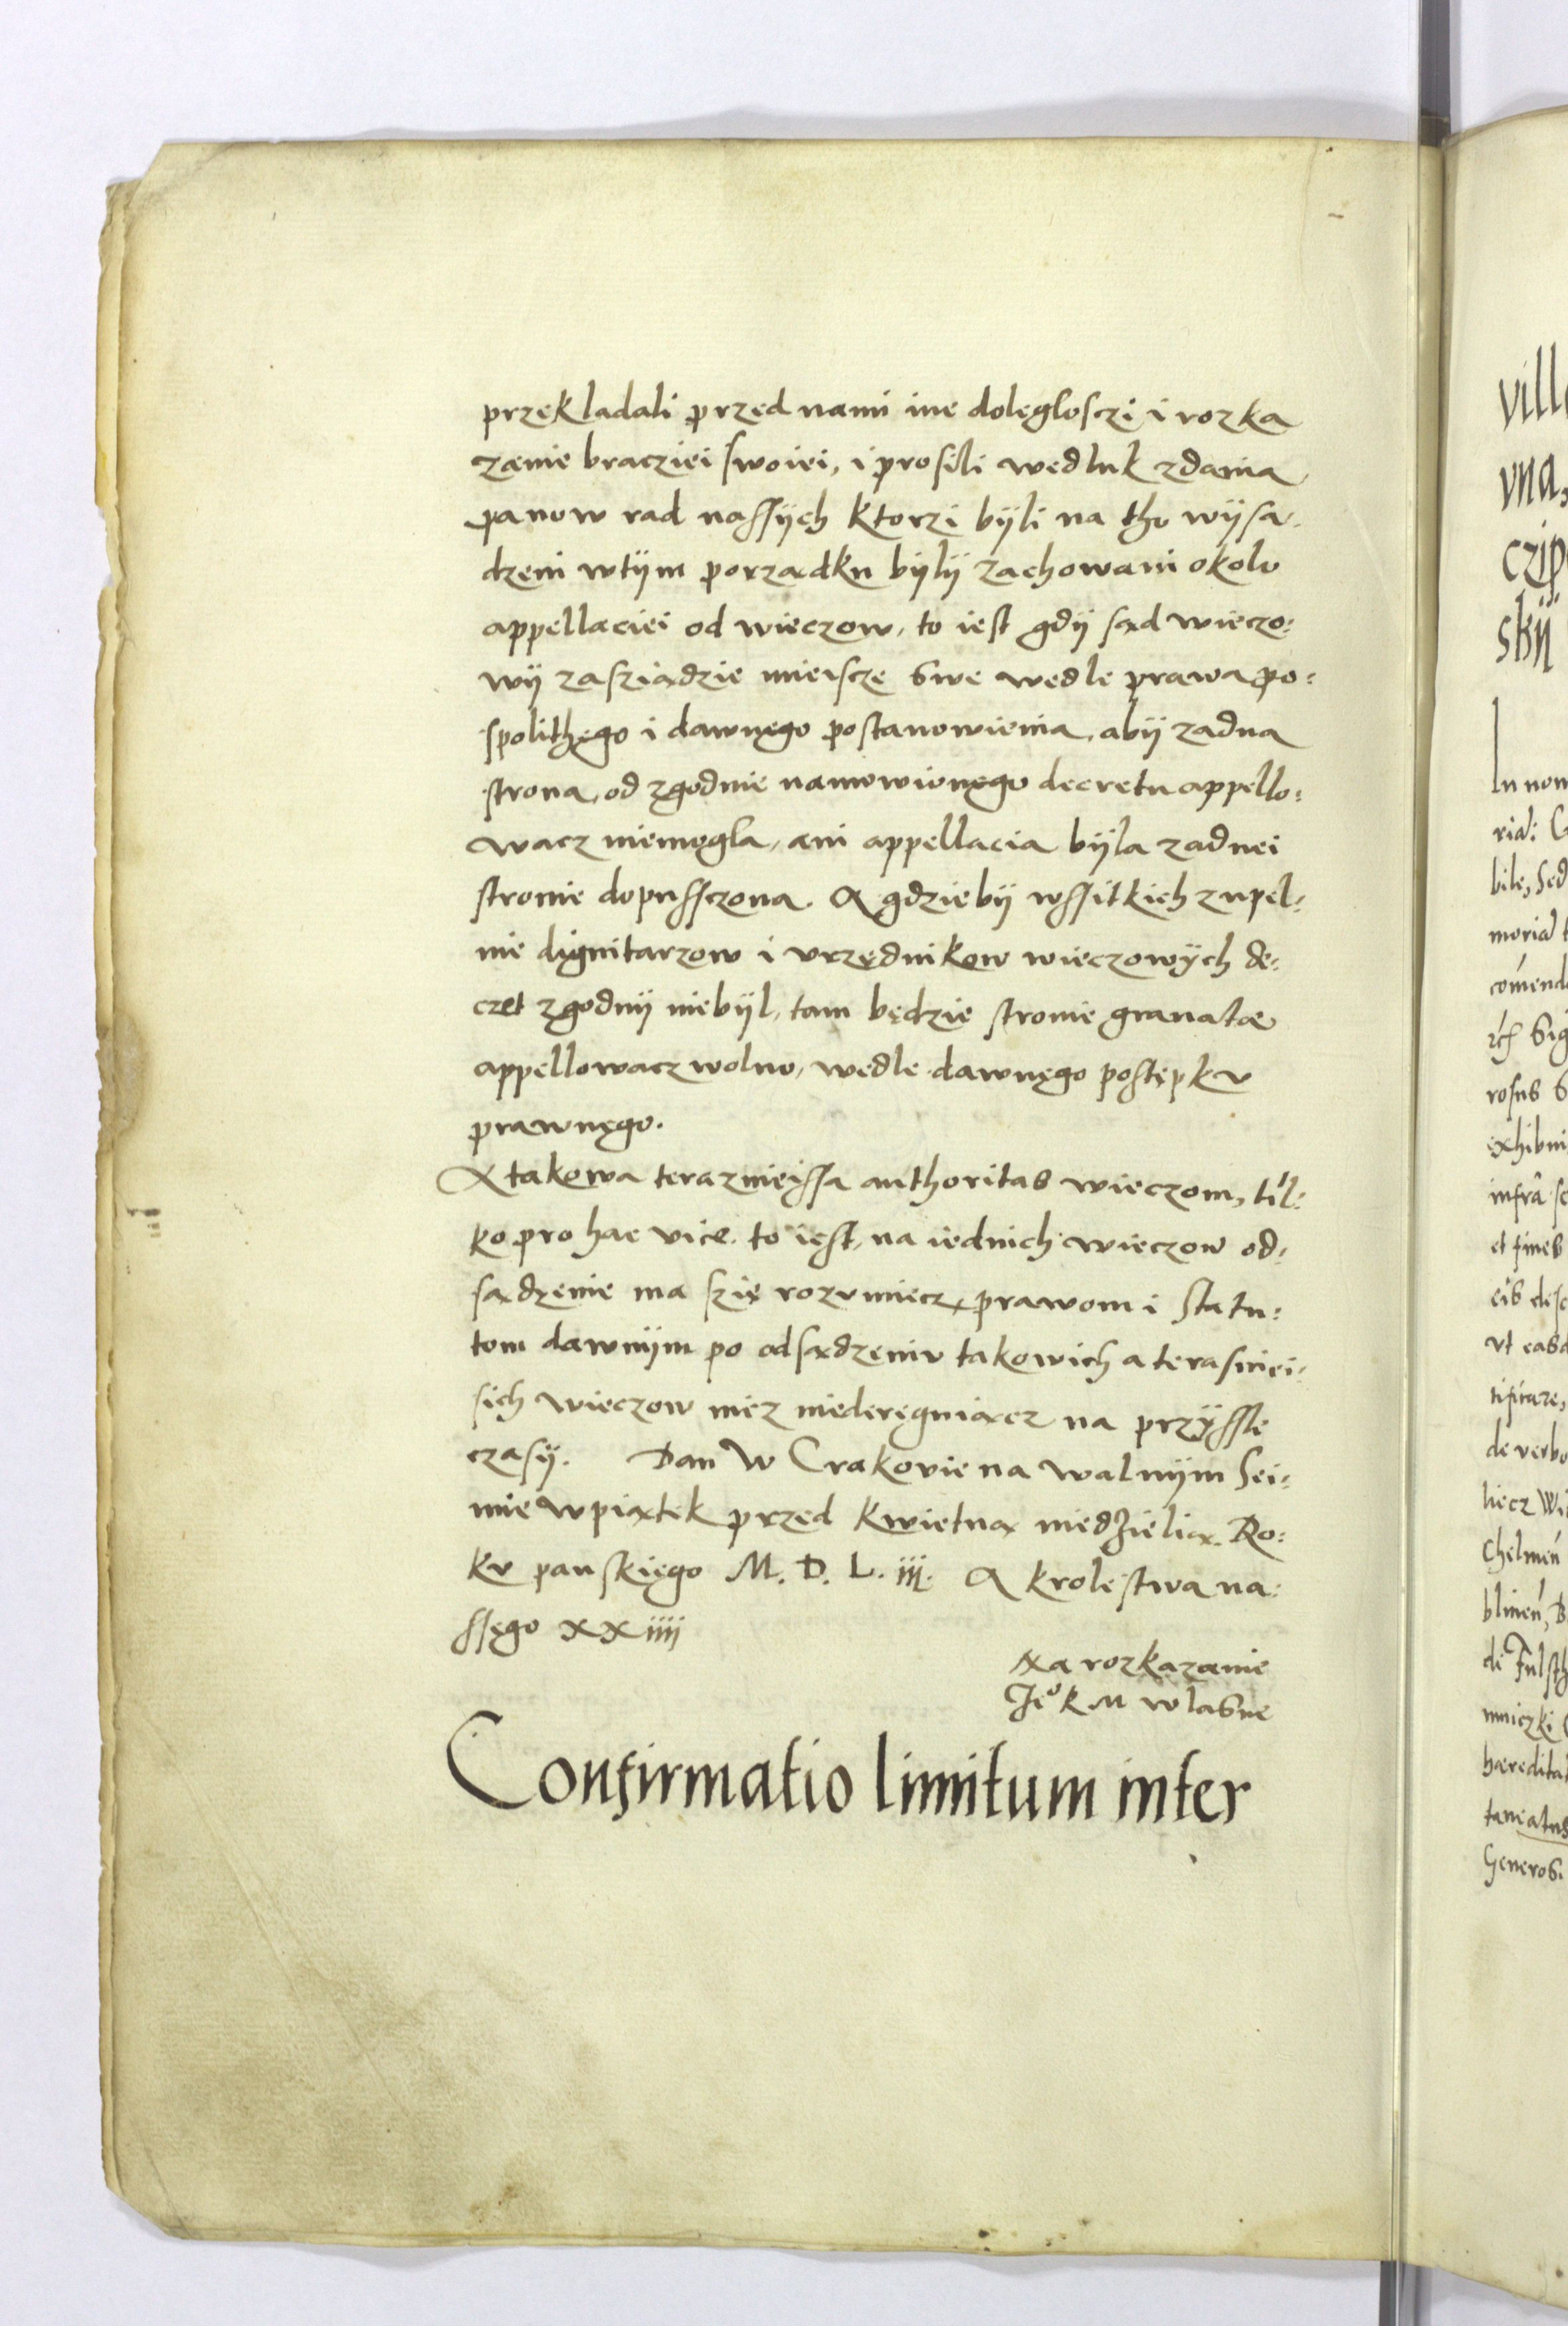 przekladali przed nami ine doległosczi i rozka
zanie bracziei swoiei, i prosili wedluk zdania
panow rad nassÿch ktorzi bÿli na tho wÿsa-
dzeni wtÿm porządku bÿlÿ zachowani okolo
appellaciei od wieczow, to iest gdÿ sąd wieczo:
wÿ zasziądzie mieiscze swe wedle prawa po:
spolithego i dawnego postanowienia, abÿ zadna
strona, od zgodnie namowionęgo decretu appello:
wacz niemogla, ani appellacia bÿla zadnei
stronie dopussczona. A gdziebÿ wssitkich zupel:
nie dignitarzow i vrzędnikow wieczowÿch de:
czet zgodnÿ niebÿl, tam będzie stronie granatæ
appellowacz wolno, wedle dawnęgo postępkv
prawnęgo.
A takowa terazneissa authoritas wieczom, til:
ko pro hac vice. to iest, na iednich wieczow od:
sądzenie ma szię rozvmiecz, prawom i statu:
tom dawnÿm po odsądzeniv takowich a terasniei:
sich wieczow nicz niederęguiącz na przÿssle
czasÿ. Dan W Crakovie na walnÿm Sei:
mie w piątek przed Kwietną niedzielią. Ro:
kv panskięgo M. D. L. iij. A krolestwa na:
ssęgo XX iiij
Na rozkazanie
Jeº K M wlasne
Confirmatio limitum inter
vill
vna,
czip
skÿ
In nom
bile, Sed
moria
exhibui
infra sc
et fines
eis desc
vt easd
tificare,
de verbo
liecz
Chelmen
blinen,
de Fulsth
hæredita
Generos.